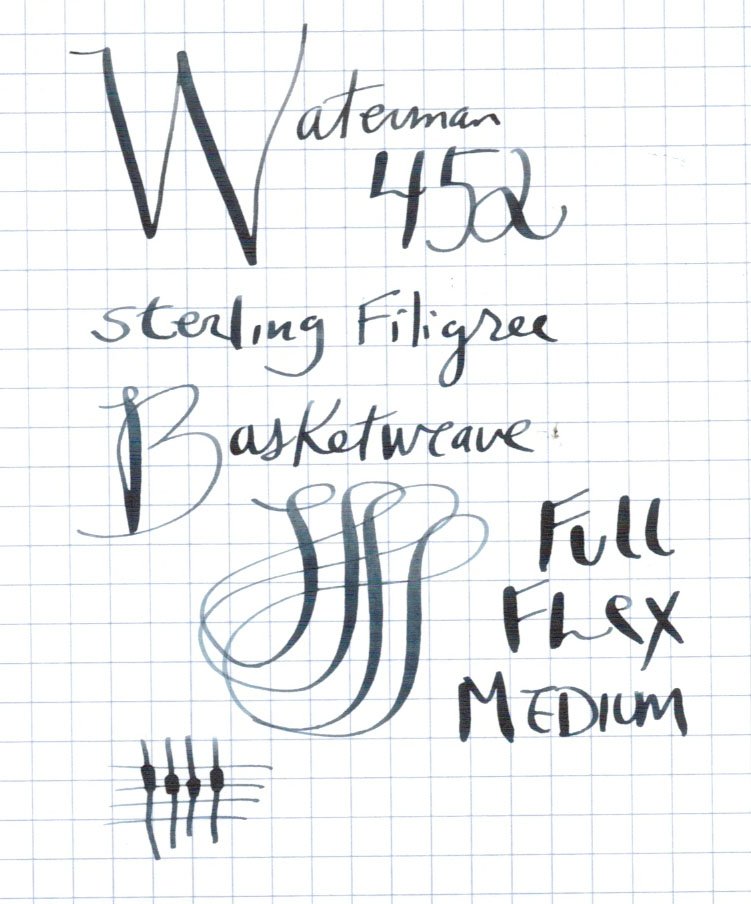 Waterman
452
Sterling Filigree
Basketweave
Full
Flex
MEDIUM